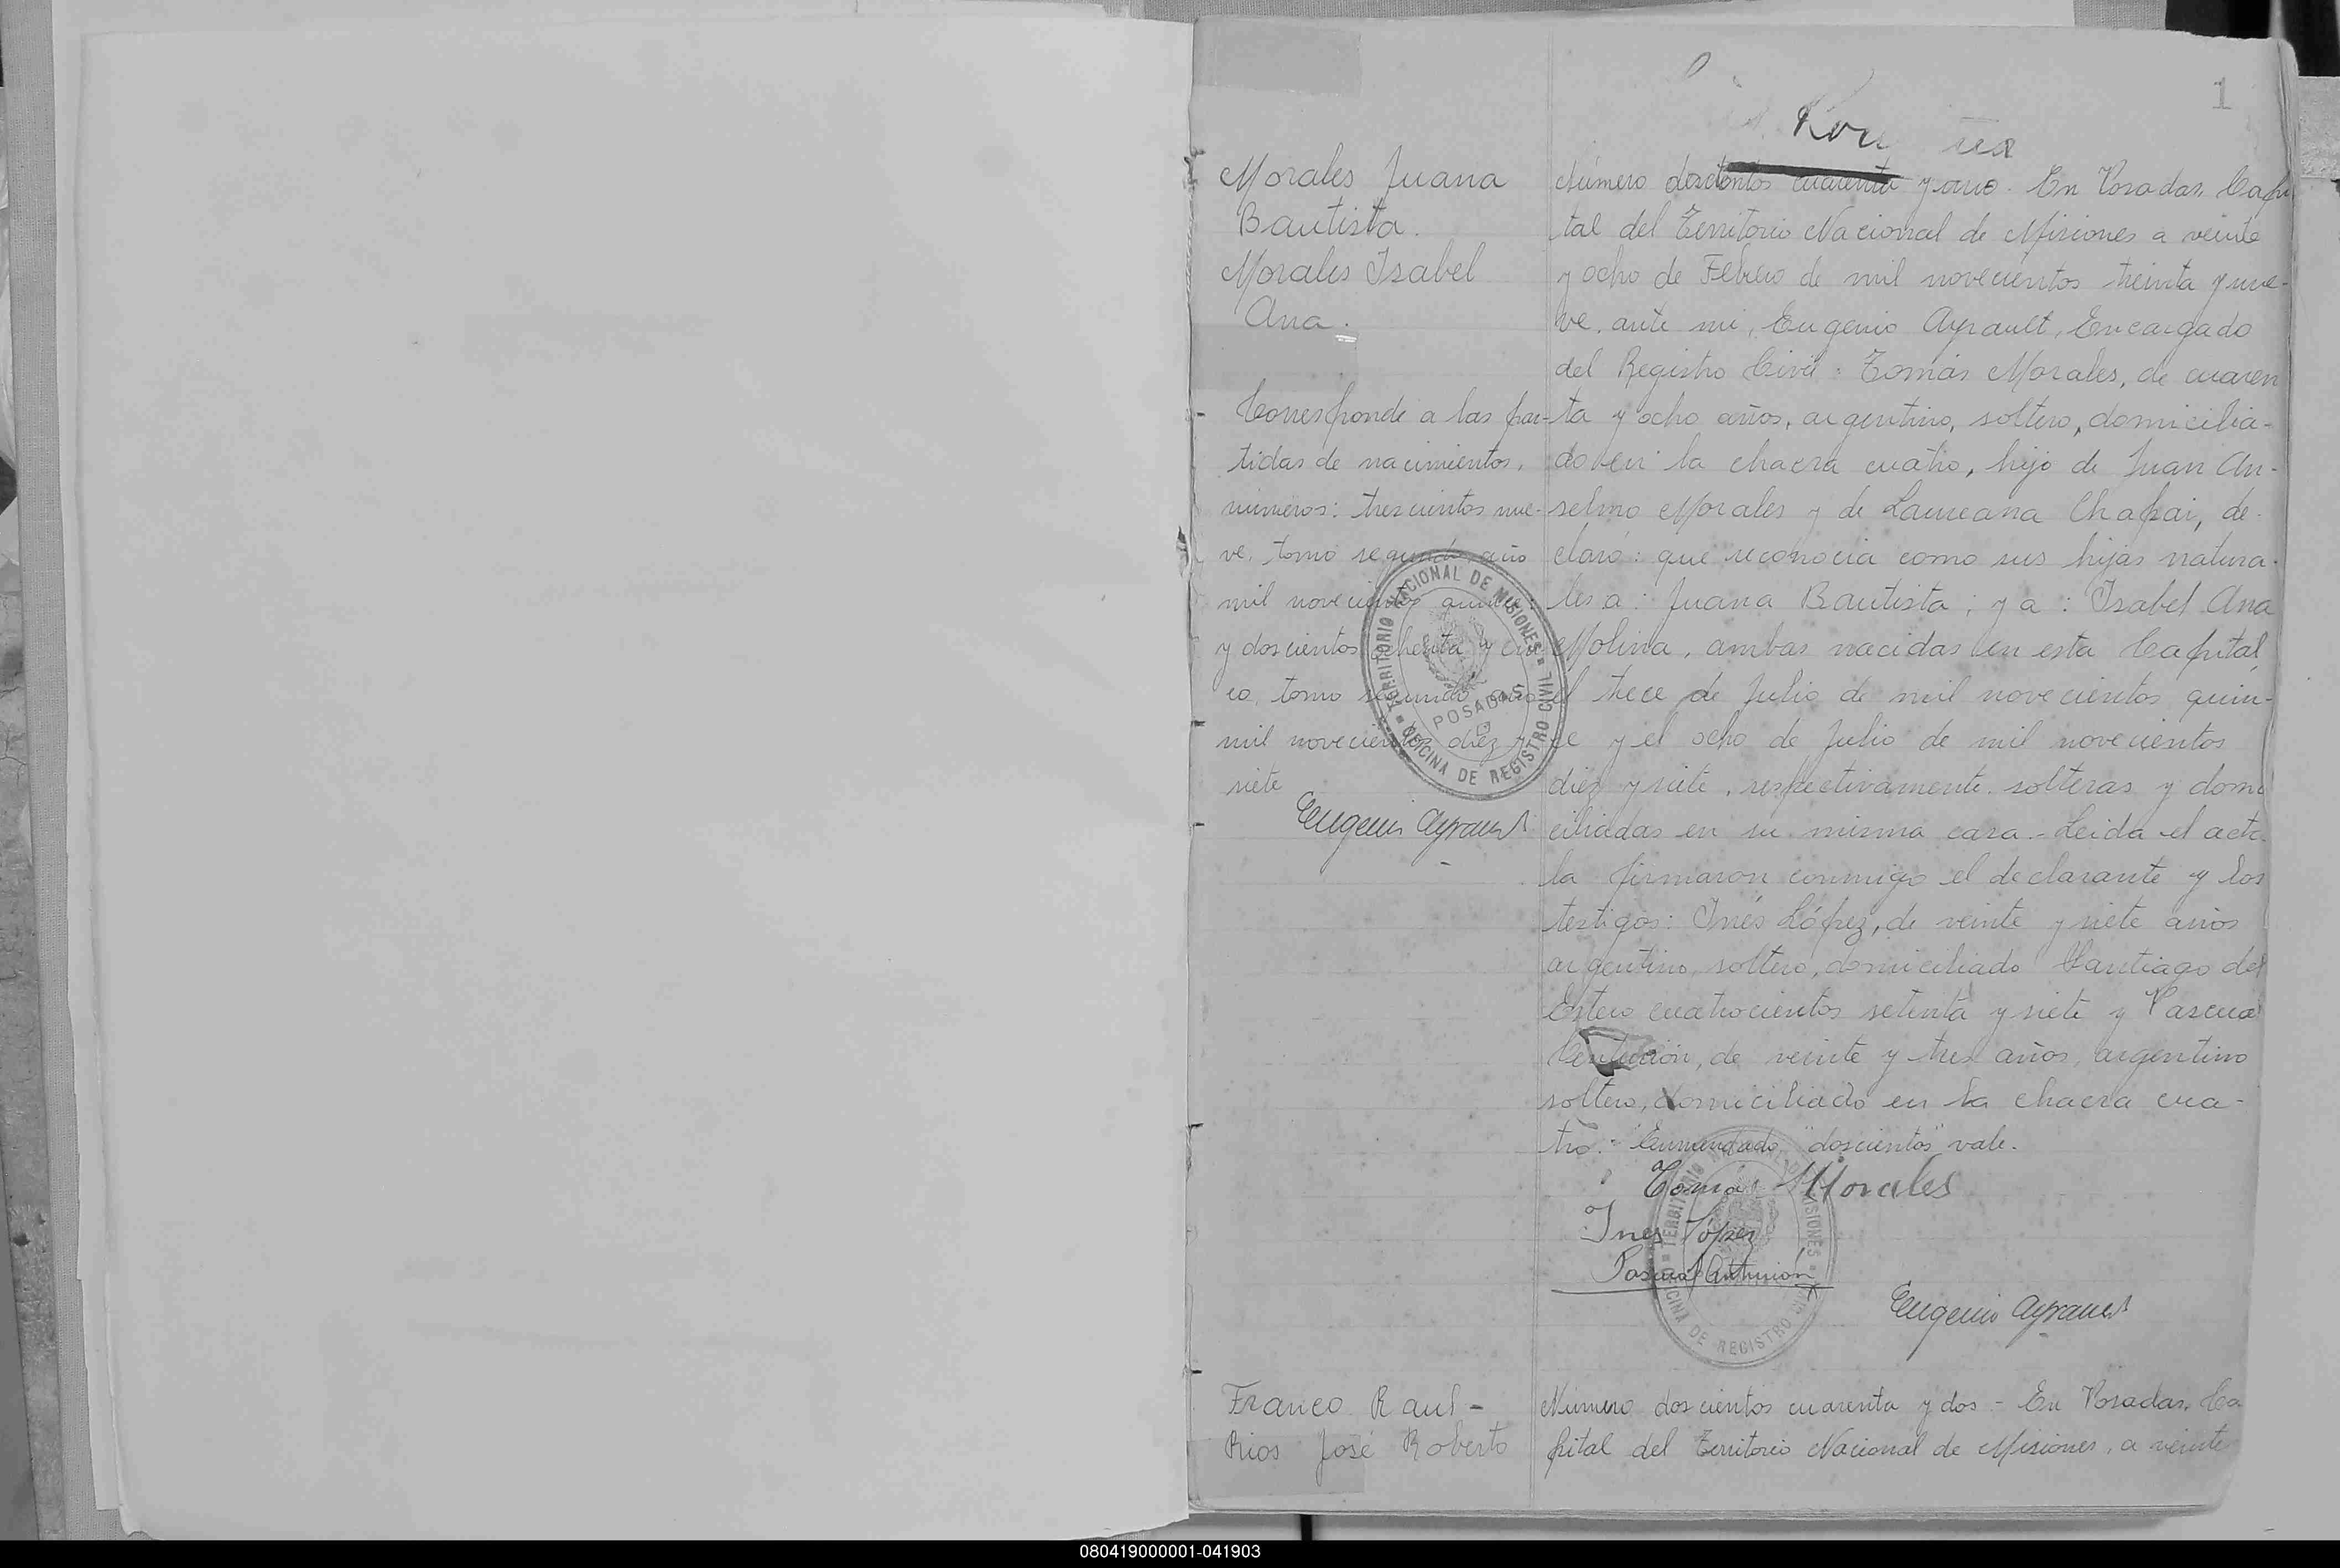 1
Morales Juana
Bautista.
Morales Isabel
Ana.
Corresponde a las par-
tidas de nacimientos,
números: trescientos nue-
ve, tomo segundo, año
mil novecientos quince;
y doscientos ochenta y cin-
co, tomo segundo, año
mil novecientos diez y
siete
Eugenio Ayrault
TERRITORIO NACIONAL DE MISIONES
POSADAS
OFICINA DE REGISTRO CIVIL
Número doscientos cuarenta y uno. En Posadas, Capi
tal del Territorio Nacional de Misiones a veinte
y ocho de Febrero de mil novecientos treinta y nue-
ve, ante mi, Eugenio Ayrault, Encargado
del Registro Civil: Tomás Morales, de cuaren
ta y ocho años, argentino, soltero, domicilia-
do en la chacra cuatro, hijo de Juan An-
selmo Morales y de Laureana Chapai, de-
claró: que reconocia como sus hijas natura-
les a: Juana Bautista; y a: Isabel Ana
Molina, ambas nacidas en esta Capital,
el trece de Julio de mil novecientos quin-
ce y el ocho de Julio de mil novecientos
diez y siete, respectivamente, solteras y domi
ciliadas en su misma casa.- Leida el acta
la firmaron conmigo el declarante y los
testigos: Inés López, de veinte y siete años
argentino, soltero, domiciliado Santiago del
Estero cuatrocientos setenta y siete y Pascual
de veinte y tres años, argentino
soltero, domiciliado en la chacra cua-
tro.- Enmendado "doscientos" vale.
Tomás Morales
Ines López
Pascual
Eugenio Ayrault
TERRITORIO NACIONAL DE MISIONES
OFICINA DE REGISTRO CIVIL
Franco Raul -
Rios José Roberto
Número doscientos cuarenta y dos - En Posadas, Ca
pital del Territorio Nacional de Misiones, a veinte
080419000001-041903